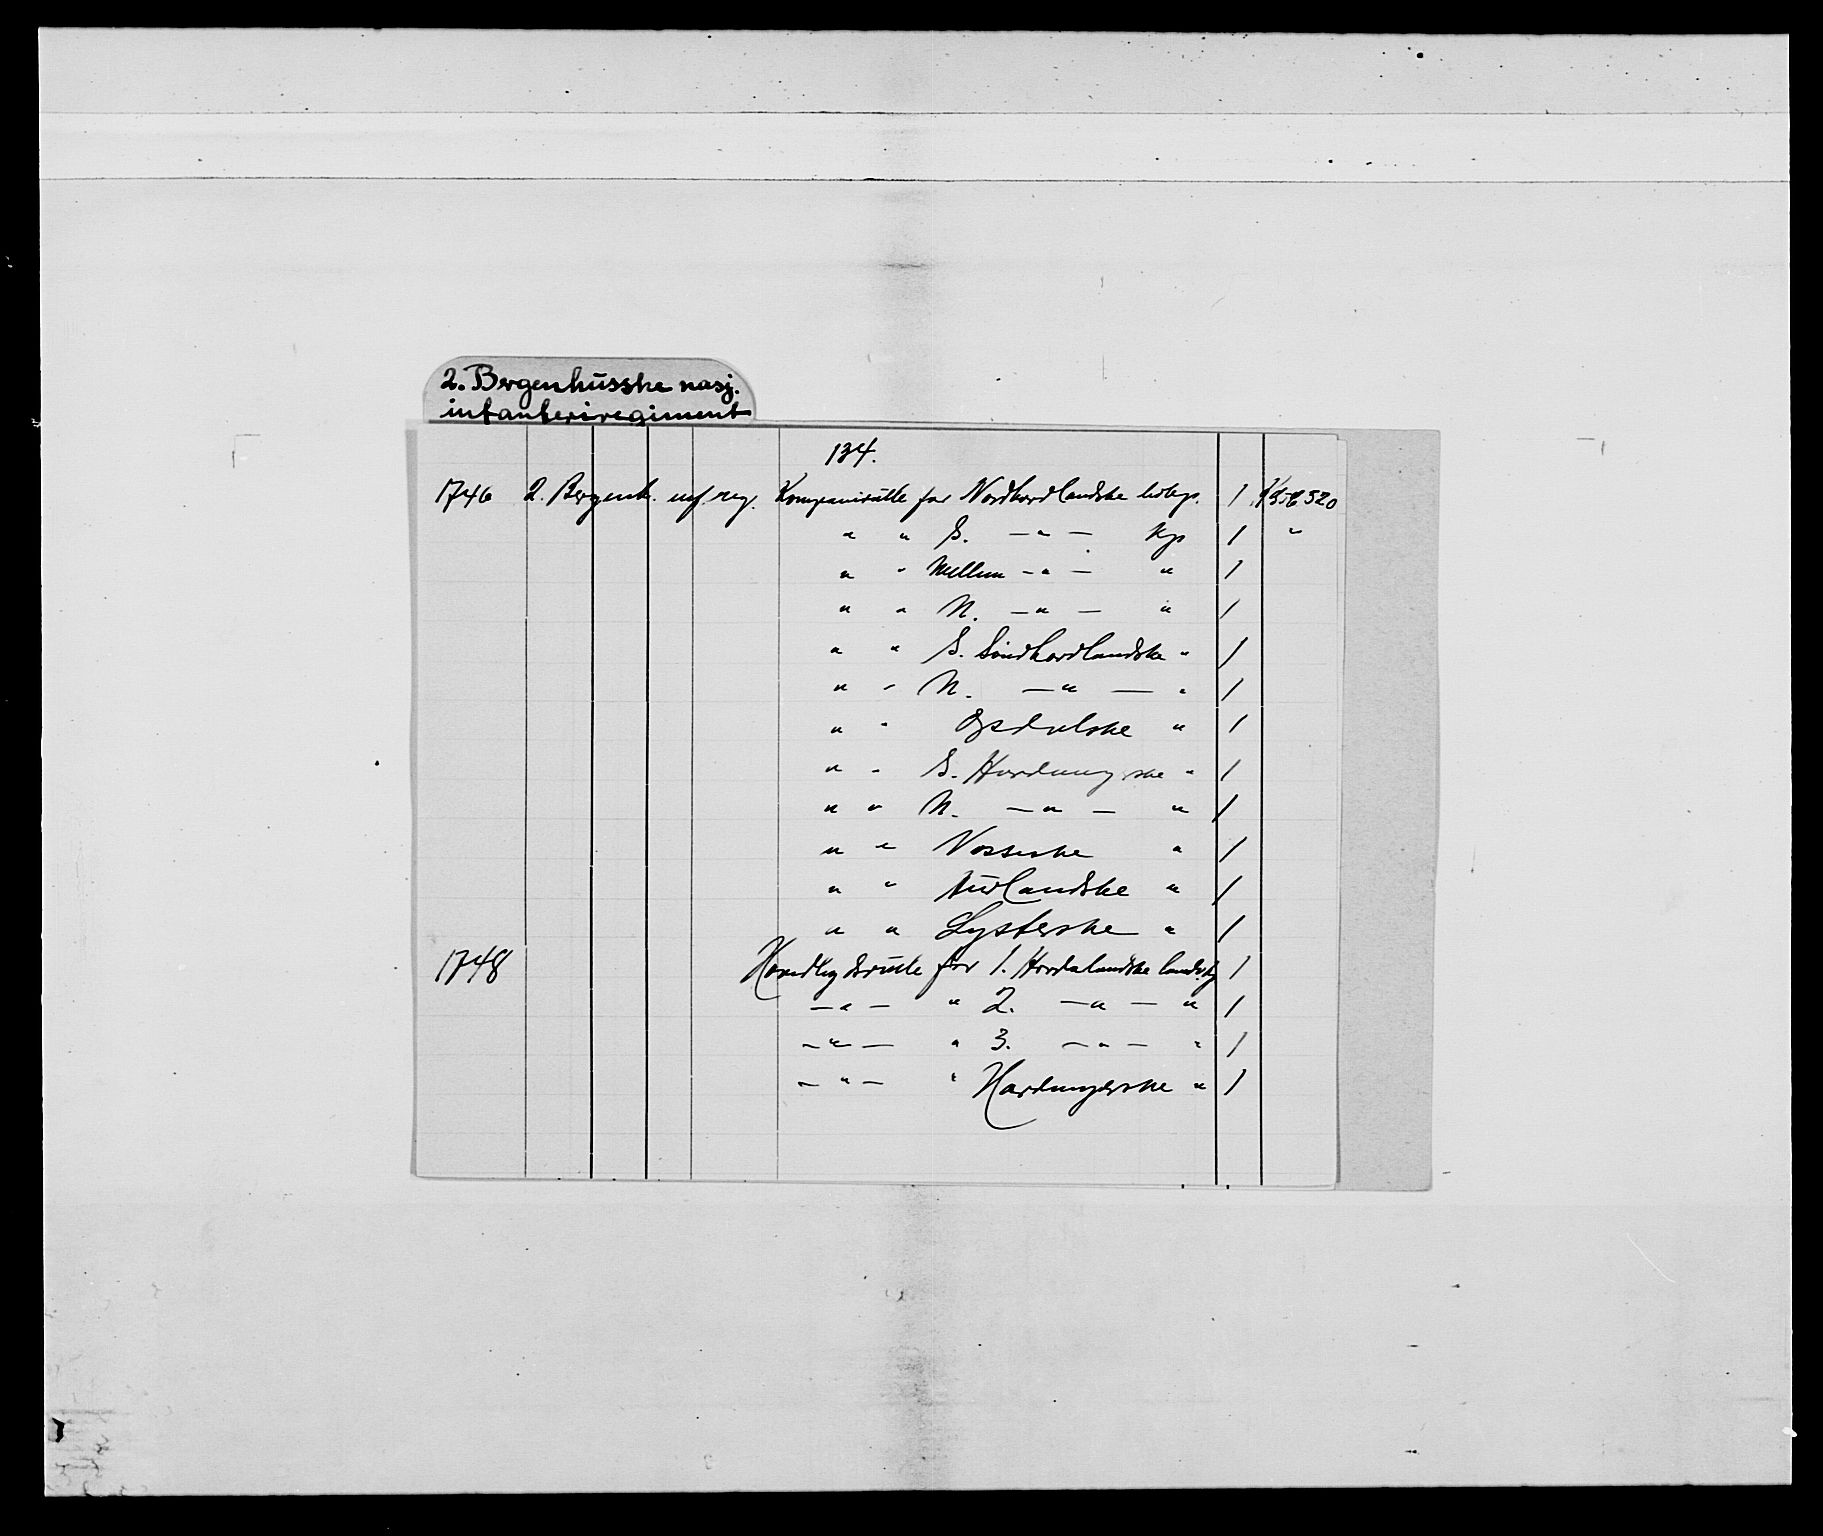 2. Bergenhūsske nasj.
infanteriregiment
134.
1746 2. Bergenh. inf. reg. Kompanirulle for Nordhordlandske 1
" " S. — " — Kp 1 "
" " Mellem — " — " 1
" " N. — " — " 1
" " S. Söndhordlandske " 1
" " N. — " — " 1
" " Opdalske " 1
" " S. Hardangerske " 1
" " N. — " — " 1
" " Vossiske " 1
" " Aurlandske " 1
" " Lysterske " 1
1748 for 1. Hordalandske 1
— " — " 2. — " — " 1
— " — " 3. — " — " 1
— " — " Hardangerske " 1